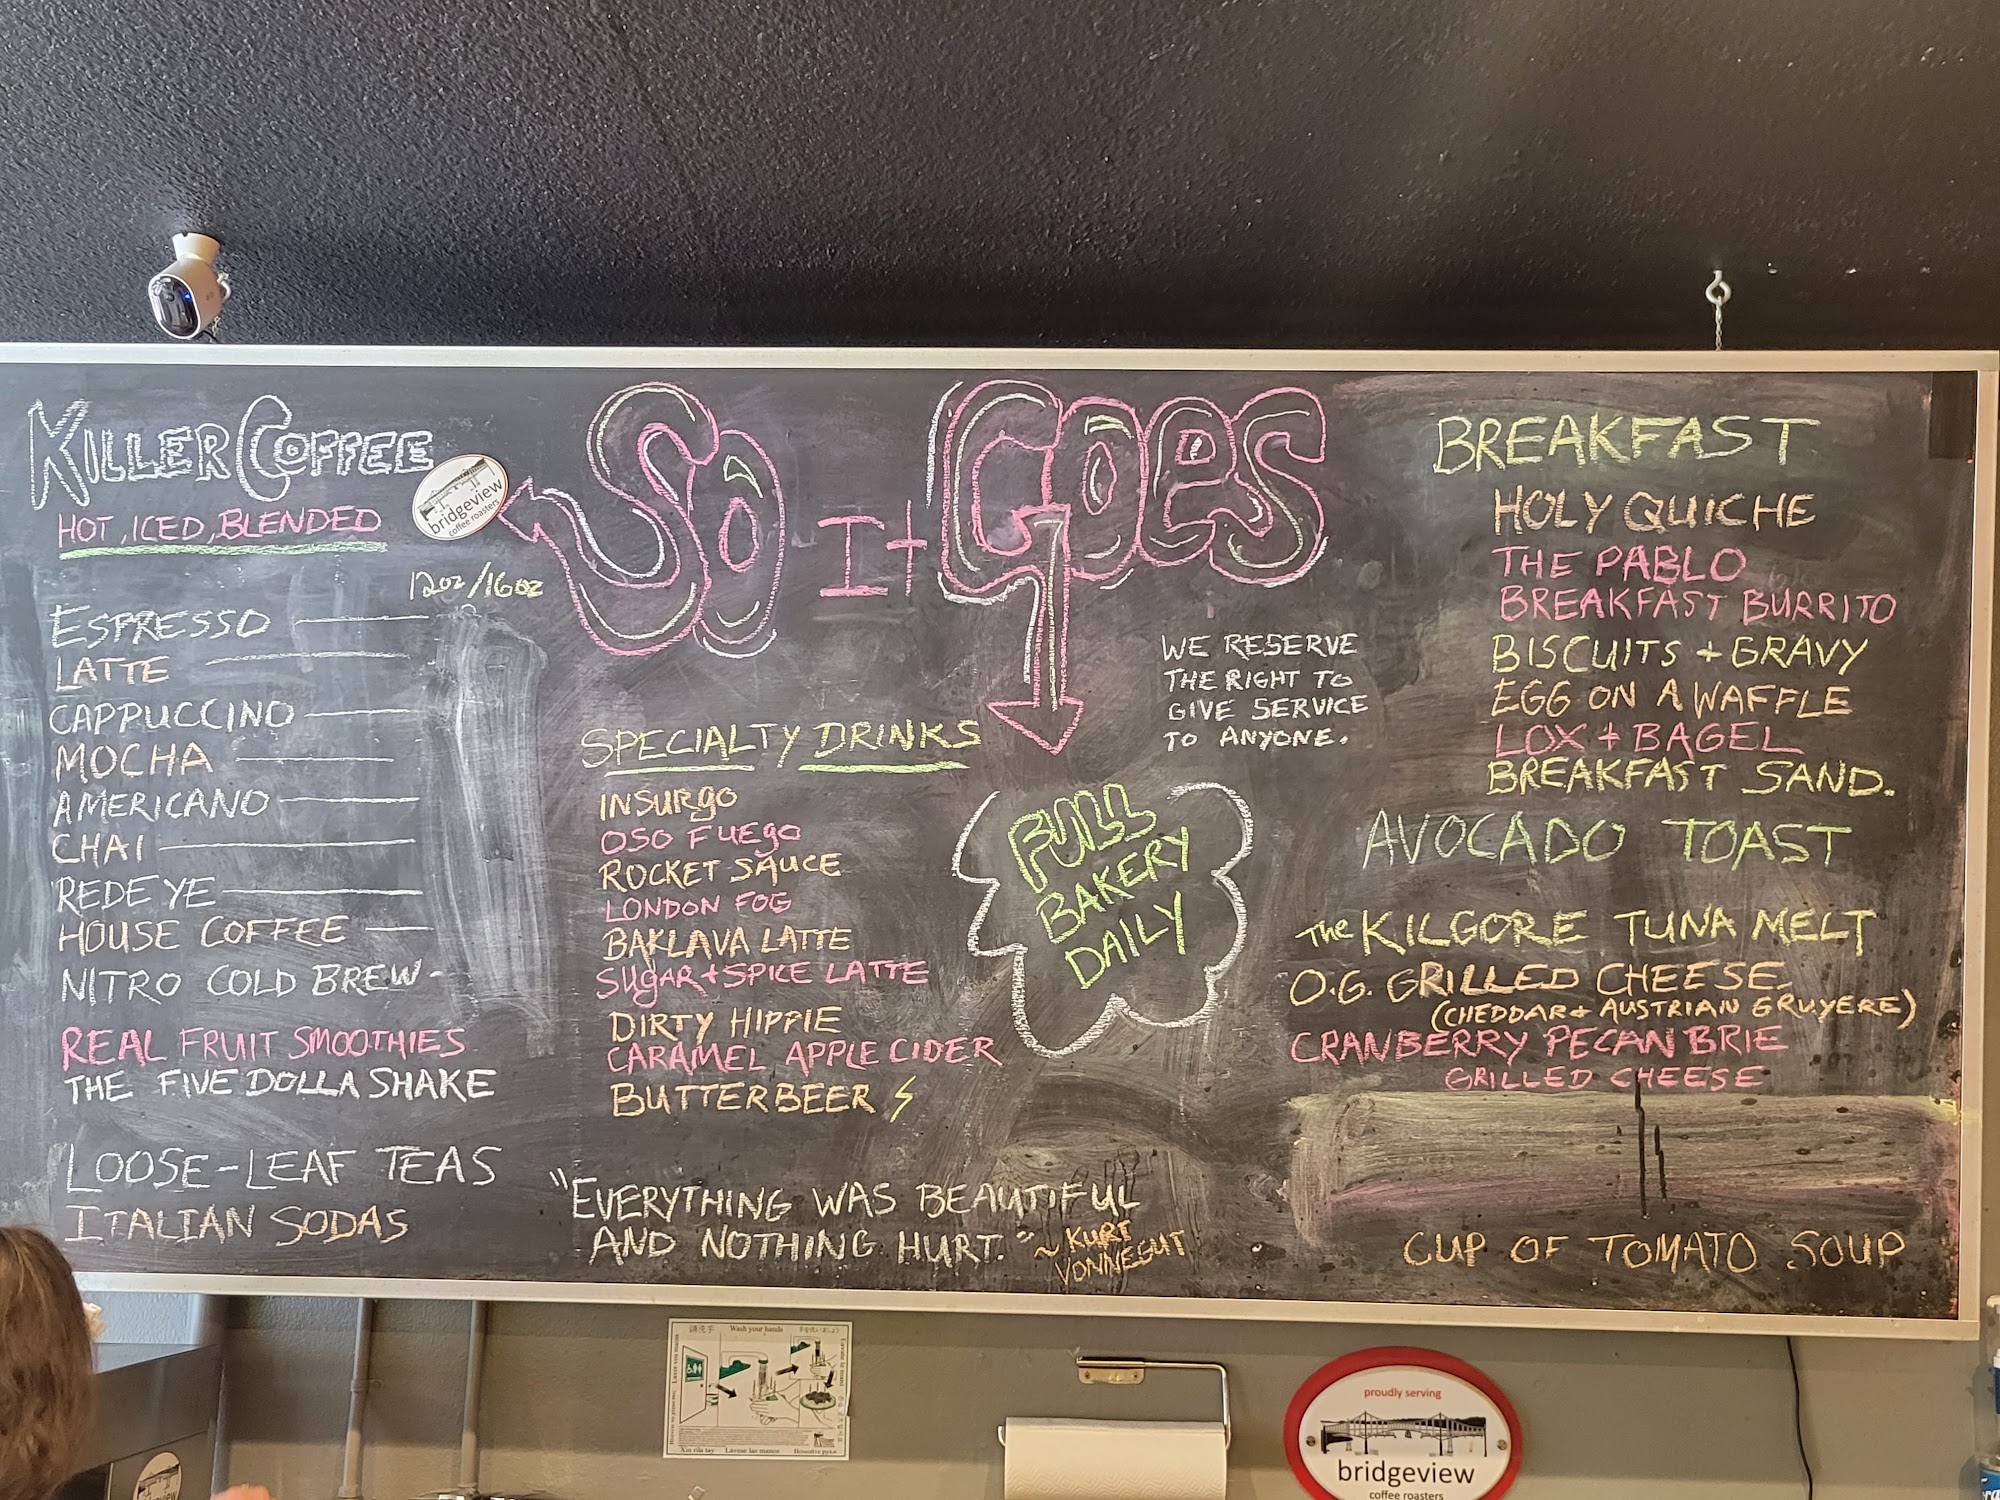 KILLER COFFEE
HOT, ICED, BLENDED
bridgeview
coffee roasters
12oz/16oz
ESPRESSO
LATTE
CAPPUCCINO
MOCHA
AMERICANO
CHAI
REDEYE
HOUSE COFFEE
NITRO COLD BREW
REAL FRUIT SMOOTHIES
THE FIVE DOLLA SHAKE
LOOSE-LEAF TEAS
ITALIAN SODAS
So It Goes
SPECIALTY DRINKS
INSURgO
OSO FUEgO
ROCKET SAUCE
LONDON FOG
BAKLAVA LATTE
SUgAR + SPICE LATTE
DIRTY HIPPIE
CARAMEL APPLE CIDER
BUTTERBEER
WE RESERVE
THE RIGHT TO
GIVE SERVICE
TO ANYONE.
FULL
BAKERY
DAILY
"EVERYTHING WAS BEAUTIFUL
AND NOTHING HURT."
~ KURT
VONNEGUT
BREAKFAST
HOLY QUICHE
THE PABLO
BREAKFAST BURRITO
BISCUITS + GRAVY
EGG ON A WAFFLE
LOX + BAGEL
BREAKFAST SAND.
AVOCADO TOAST
The KILGORE TUNA MELT
O.G. GRILLED CHEESE
(CHEDDAR + AUSTRIAN GRUYERE)
CRANBERRY PECAN BRIE
GRILLED CHEESE
CUP OF TOMATO SOUP
Wash your hands
Xin rửa tay
Lávese las manos
Помойте руки
proudly serving
bridgeview
coffee roasters